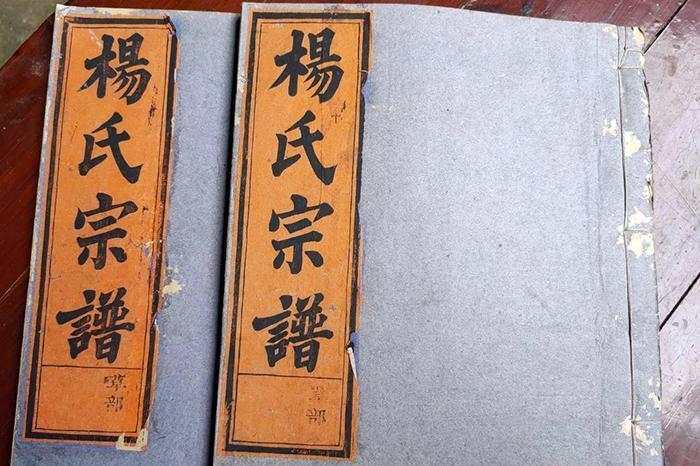 楊氏宗譜
部
楊氏宗譜
部